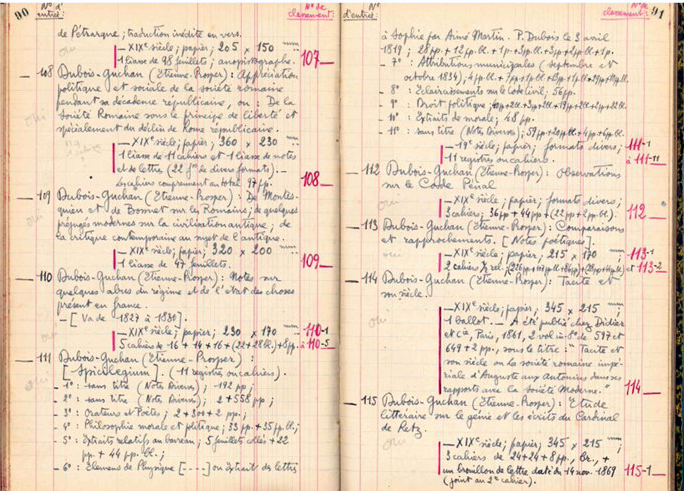 90
N° d'entrée:
N° de classement:
de Pétrarque; traduction inédite en vers.
— XIXe siècle; papier; 205 x 150 mm
1 liasse de 98 feuillets; anopistographe.
107
108 Dubois-Guchan (Etienne-Prosper): Appréciation
politique et sociale de la société romaine
pendant sa décadence républicaine, ou: De la
Société Romaine sous le principe de liberté et
spécialement du déclin de Rome républicaine.
— XIXe siècle; papier; 360 x 230 mm
1 liasse de 11 cahiers et 1 liasse de notes
et de lettre (22 ff de divers formats). —
Les cahiers comprennent au total 97 pp.
108
109 Dubois-Guchan (Etienne-Prosper): De Montes-
quieu et de Bossuet sur les Romains; de quelques
préjugés modernes sur la civilisation antique; de
la critique contemporaine au sujet de l'antique.
— XIXe siècle; papier; 320 x 200 mm
1 liasse de 47 feuillets.
109
110 Dubois-Guchan (Etienne-Prosper): Notes sur
quelques abus du régime et de l'état des choses
présent en France.
— [Va de 1827 à 1830].
— XIXe siècle; papier; 230 x 170 mm
5 cahiers de 16 + 14 + 16 + (22+28 bl.) + 8 pp.
110-1
à 110-5
111 Dubois-Guchan (Etienne-Prosper):
[Spicilegium]. (11 registres ou cahiers).
- 1°: sans titre (Notes diverses), 192 pp;
- 2°: sans titre (Notes diverses); 2 + 558 pp;
- 3°: Orateurs et Poëtes; 2 + 301 + 2 pp.;
- 4°: Philosophie morale et politique; 33 pp. + 35 pp. bl.;
- 5°: Extraits relatifs au barreau; 5 feuillets collés + 22
pp. + 44 pp. bl.;
- 6°: Elémens de Physique [----] ou Extrait de lettres
91
N° d'entrée:
N° de classement:
à Sophie par Aimé Martin. P. Dubois le 3 avril
1819;
- 7°: Attributions municipales (septembre et
octobre 1834);
- 8°: Eclaircissements sur le Code Civil; 56 pp.
- 9°: Droit politique;
- 10°: Extraits de morale; 48 pp.
- 11°: sans titre (Notes diverses);
— 19e siècle; papier; formats divers;
11 registres ou cahiers.
111-1
à 111-11
112 Dubois-Guchan (Etienne-Prosper): Observations
sur le Code Pénal
— XIXe siècle; papier; formats divers;
3 cahiers; 36 pp + 44 pp + (22 pp + 2 pp. bl.).
112
113 Dubois-Guchan (Etienne-Prosper): Comparaisons
et rapprochements. [Notes poétiques].
— XIXe siècle; papier; 215 x 170 mm
2 cahiers
113-1
et 113-2
114 Dubois-Guchan (Etienne-Prosper): Tacite et
son siècle.
— XIXe siècle; papier; 345 x 215 mm;
1 ballot. — A été publié chez Didier
et Cie, Paris, 1861, 2 vol. in-8° de 597 et
649 + 2 pp., sous le titre: "Tacite et
son siècle ou la société romaine impé-
riale d'Auguste aux Antonins dans ses
rapports avec la Société Moderne."
114
115 Dubois-Guchan (Etienne-Prosper): Etude
littéraire sur le génie et les écrits du Cardinal
de Retz.
— XIXe siècle; papier; 345 x 215 mm;
3 cahiers de 24 + 24 + 8 pp., br., +
un brouillon de lettre daté du 14 nov. 1869
(joint au 2e cahier).
115-1